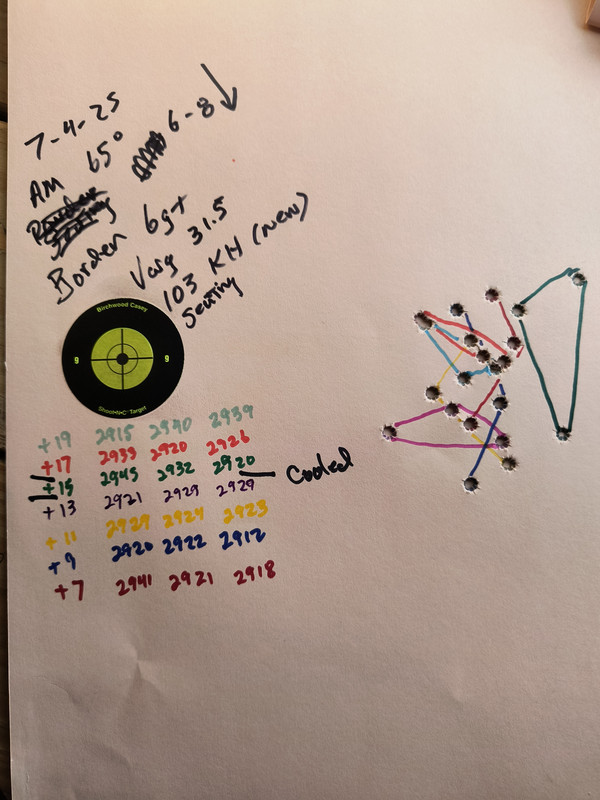 7-4-25
AM 65° 6-8
Borden 6gt
Varg 31.5
103 KH (new)
Seating
Birchwood Casey
9 9
Shoot•N•C® Target
+19 2915 2940 2939
+17 2933 2920 2926
+15 2945 2932 2920 Cooled
+13 2921 2929 2929
+11 2929 2924 2923
+9 2920 2922 2912
+7 2941 2921 2918